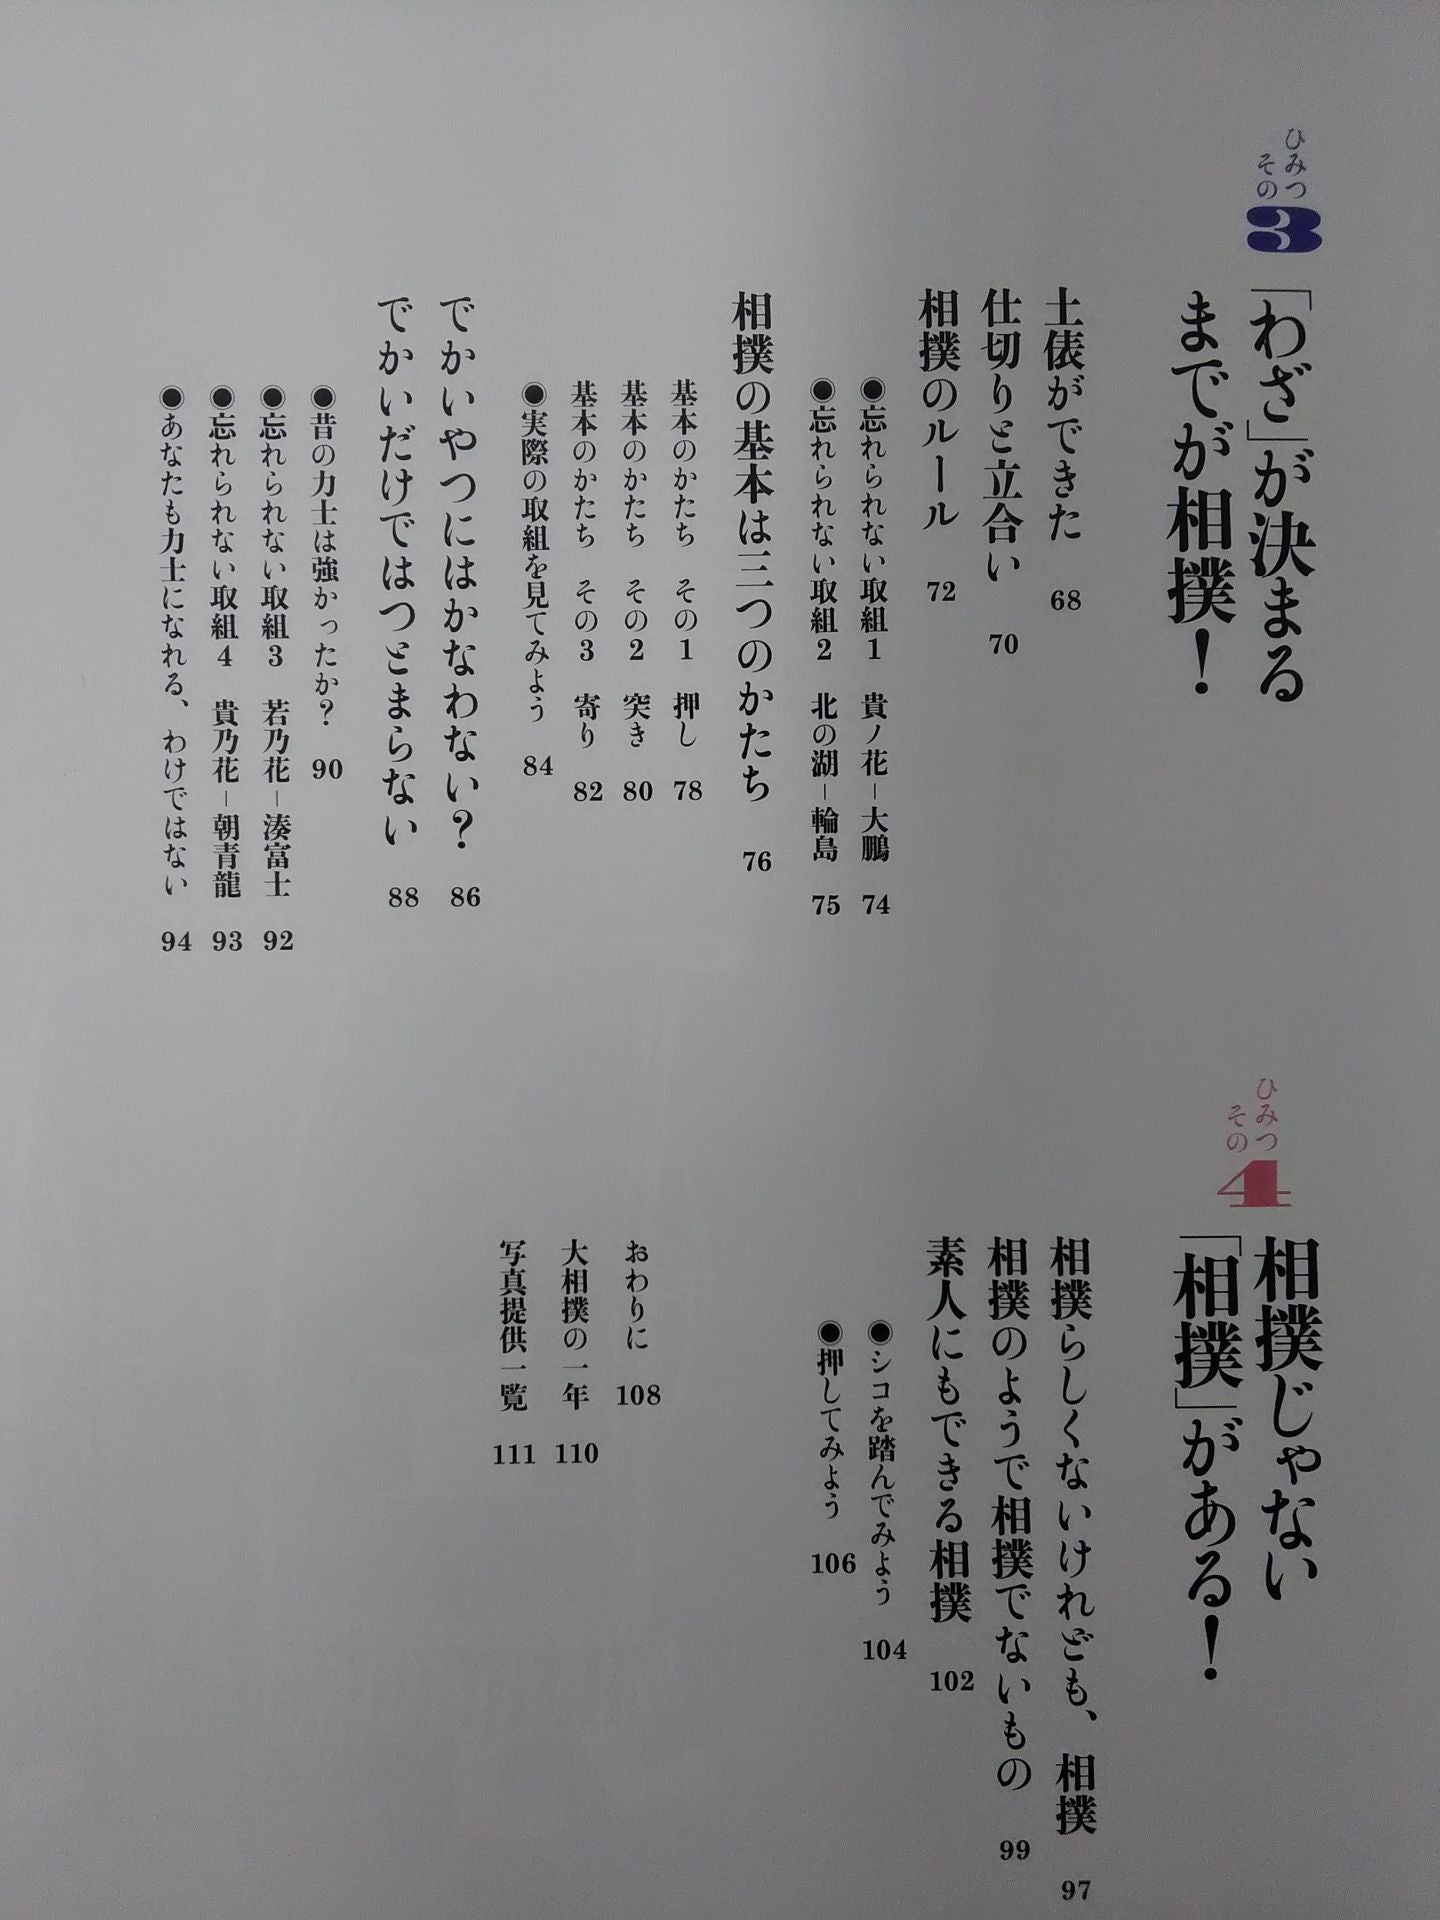 ひみつ
その
3
「わざ」が決まる
までが相撲！
土俵ができた 68
仕切りと立合い 70
相撲のルール 72
◉忘れられない取組1 貴ノ花−大鵬 74
◉忘れられない取組2 北の湖−輪島 75
相撲の基本は三つのかたち 76
基本のかたち その1 押し 78
基本のかたち その2 突き 80
基本のかたち その3 寄り 82
◉実際の取組を見てみよう 84
でかいやつにはかなわない？ 86
でかいだけではつとまらない 88
◉昔の力士は強かったか？ 90
◉忘れられない取組3 若乃花−湊富士 92
◉忘れられない取組4 貴乃花−朝青龍 93
◉あなたも力士になれる、わけではない 94
ひみつ
その
4
相撲じゃない
「相撲」がある！
相撲らしくないけれども、相撲 97
相撲のようで相撲でないもの 99
素人にもできる相撲 102
◉シコを踏んでみよう 104
◉押してみよう 106
おわりに 108
大相撲の一年 110
写真提供一覧 111